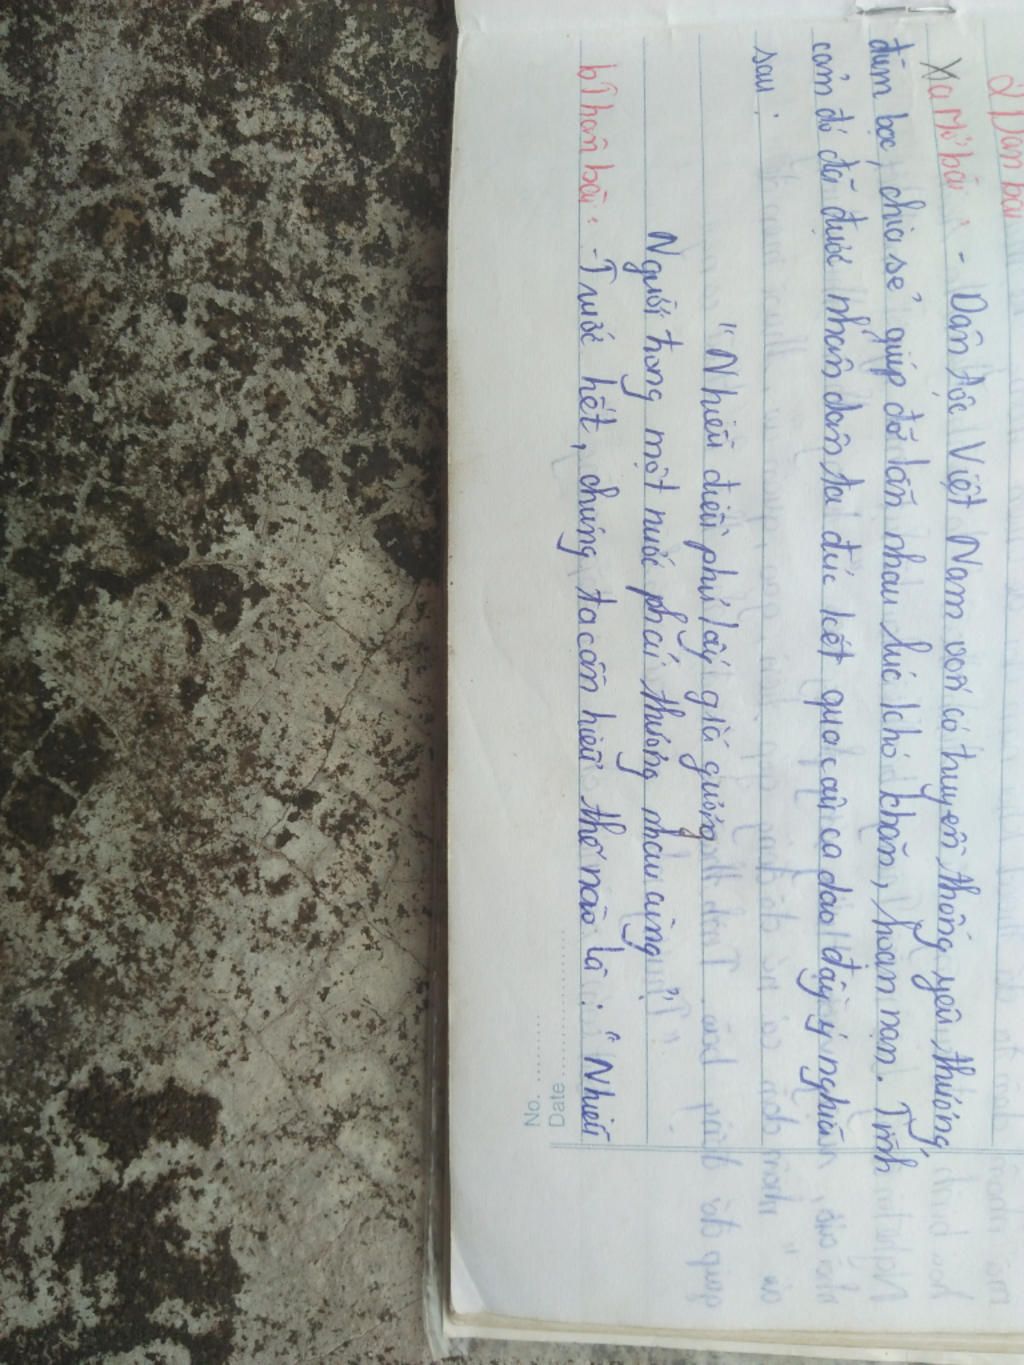 2) Dàn bài
a Mở bài: - Dân tộc Việt Nam vốn có truyền thống yêu thương,
đùm bọc, chia sẻ giúp đỡ lẫn nhau lúc khó khăn, hoạn nạn. Tình
cảm đó đã được nhân dân ta đúc kết qua câu ca dao đầy ý nghĩa
sau:
"Nhiễu điều phủ lấy giá gương
Người trong một nước phải thương nhau cùng"
b) Thân bài: - Trước hết, chúng ta cần hiểu thế nào là: "Nhiễu
No.
Date